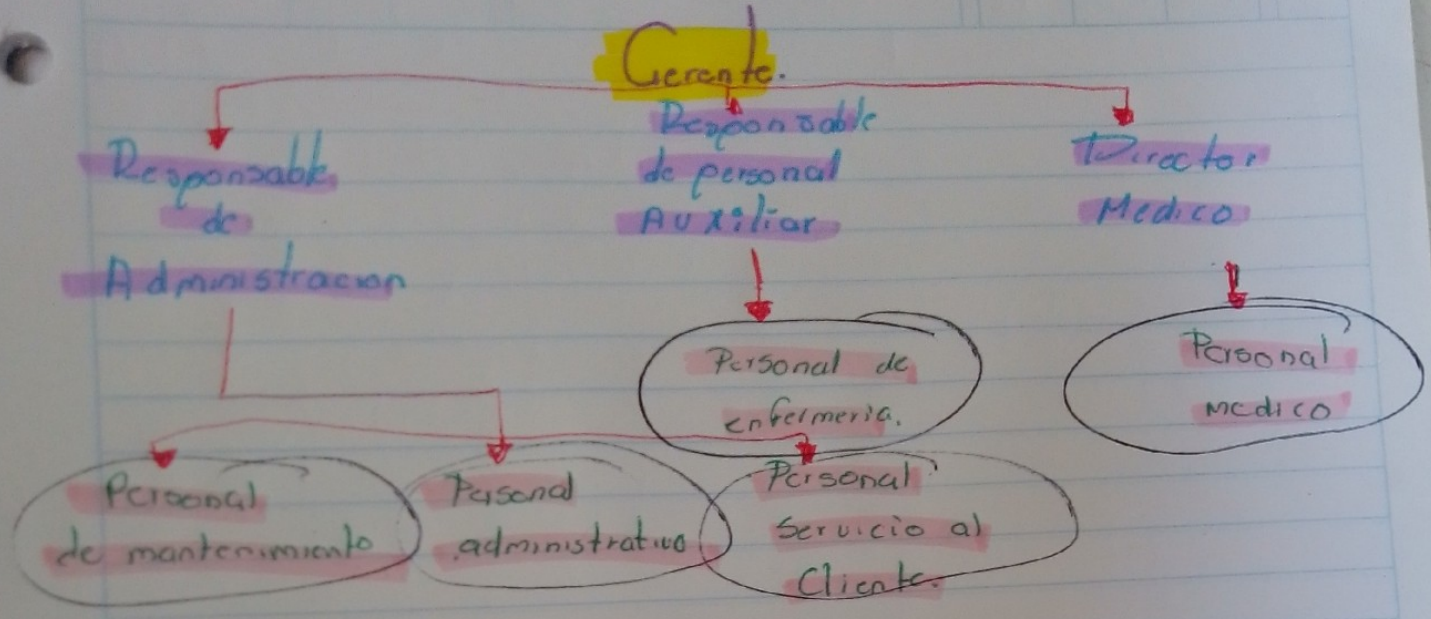 Gerente.
Responsable
de
Administracion
Responsable
de personal
Auxiliar
Director
Medico
Personal de
enfermeria.
Personal
medico
Personal
de mantenimiento
Personal
administrativo
Personal
Servicio al
Cliente.